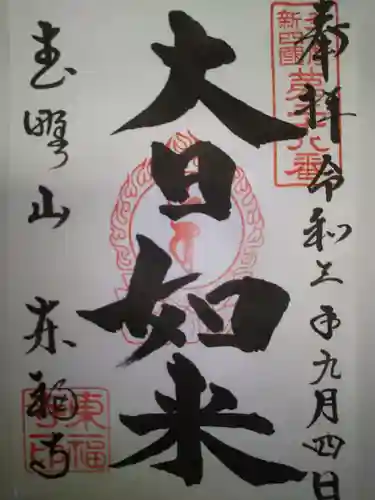 奉拝 令和三年九月四日
新四国
番
大日如来
野山 東福寺
東福寺印